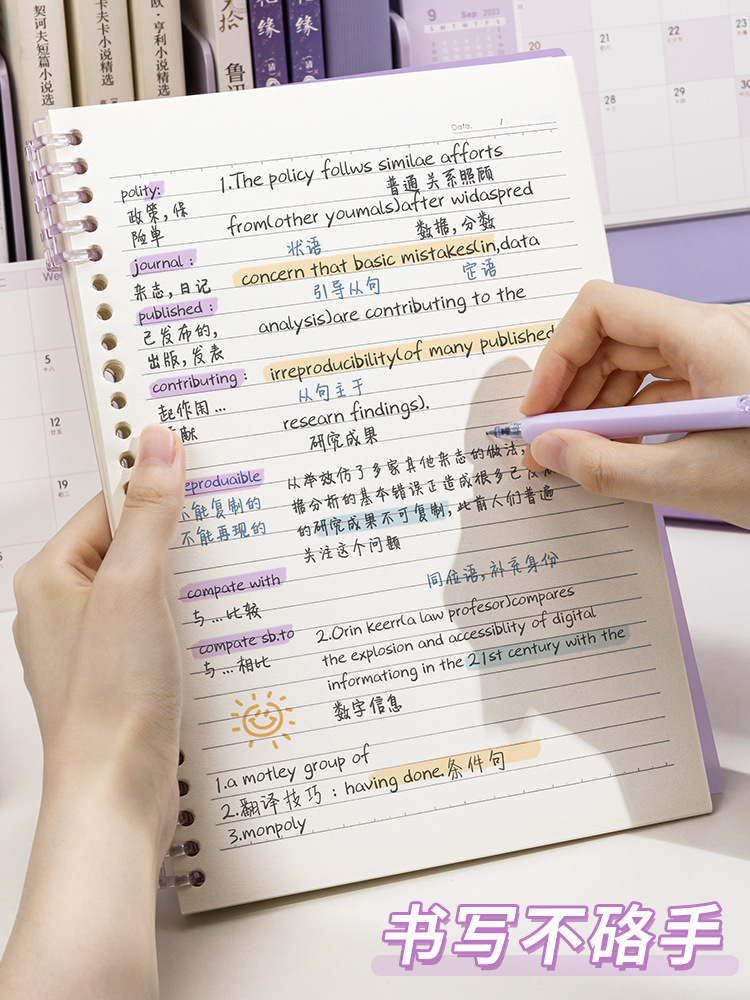 契诃夫短篇小说精选
卡夫卡小说精选
欧·亨利小说精选
拾
鲁迅
缘
缘
9
Sep. 2023
S M T W T F S
20
21
22
23
28
29
30
5
12
19
Date. /
polity:
1.The policy follws similae afforts
普通 关系照顾
政策,保
险单
from(other youmals)after widaspred
数据,分数
journal :
状语
concern that basic mistakes(in,data
杂志,日记
引导从句
定语
published :
analysis)are contributing to the
已发布的,
出版,发表
irreproducibility(of many published
contributing :
从句主于
起作用...
researn findings).
献
研究成果
eproduaible
从学效仿了多家其他杂志的做法,
不能复制的
据分析的基本错误正造成很多已发
不能再现的
的研究成果不可复制,此前人们普遍
关注这个问题
compate with
同位语,补充身份
与...比较
2.Orin keerr(a law profesor)compares
compate sb.to
the explosion and accessiblity of digital
与...相比
informationg in the 21st century with the
数字信息
1.a motley group of
2.翻译技巧:having done.条件句
3.monpoly
书写不硌手